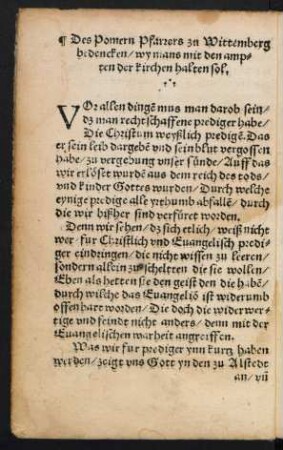 ¶ Des Pomern Pfarrers zu Wittemberg
bedencken/ wy mans mit den amp-
ten der kirchen halten sol.
VOr allen dingē mus man darob sein/
dz man rechtschaffene prediger habe/
Die Christum weyßlich predigē. Das
er sein leib dargebē vnd sein blut vergossen
habe/ zu vergebung vnser sünde/ Auff das
wir erlöset wurdē aus dem reich des tods/
vnd kinder Gottes wurden/ Durch welche
eynige predige alle yrthumb abfallē/ durch
die wir bißher sind verfüret worden.
Denn wir sehen/ dz sich etlich/ weiß nicht
wer/ fur Christlich vnd Euangelisch predi-
ger eindringen/ die nicht wissen zu leeren/
sondern allein zuscheltten die sie wollen/
Eben als hetten sie den geist den die habē/
durch wilche das Euangeliō ist widerumb
offenbart worden/ Die doch die widerwer-
tige vnd feindt nicht anders/ denn mit der
Euangelischen warheit angreiffen.
Was wir fur prediger ynn kurtz haben
werden/ zeigt vns Gott yn den zu Alstedt
an/ vñ